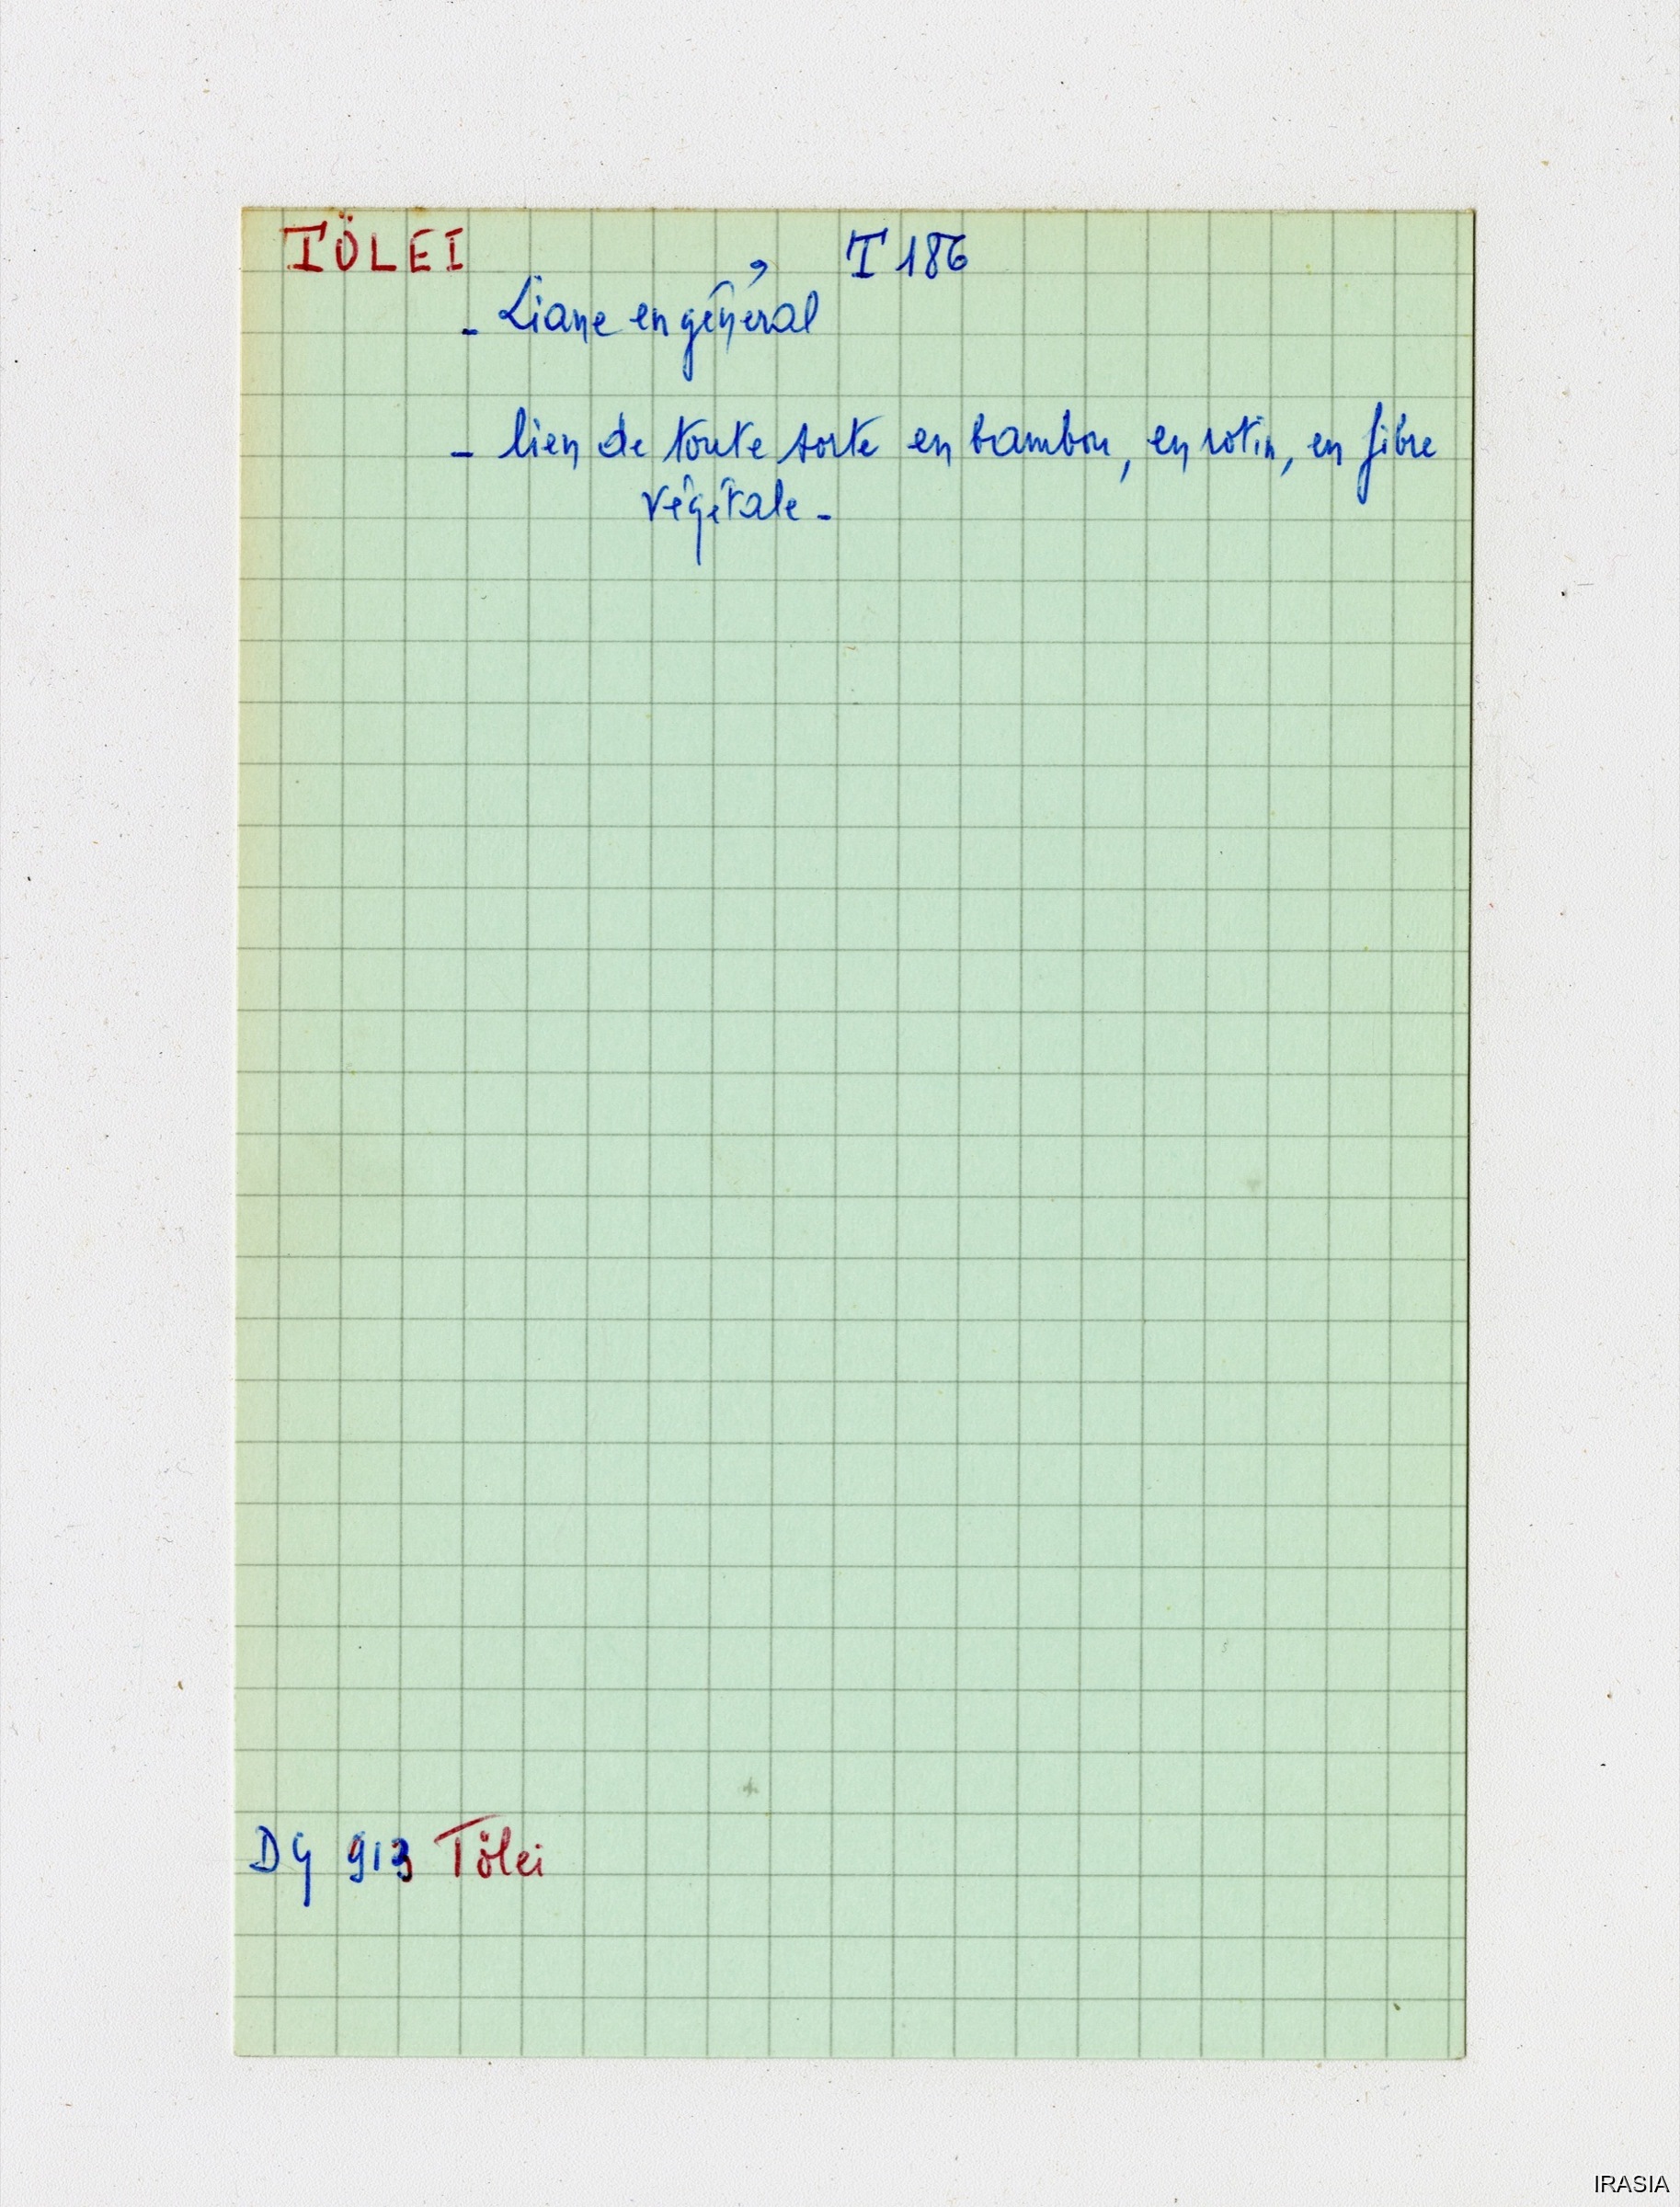 TÖLEI T 186
- Liane en général
- lien de toute sorte en bambou, en rotin, en fibre
végétale -
Dg 913 Tölei
IRASIA